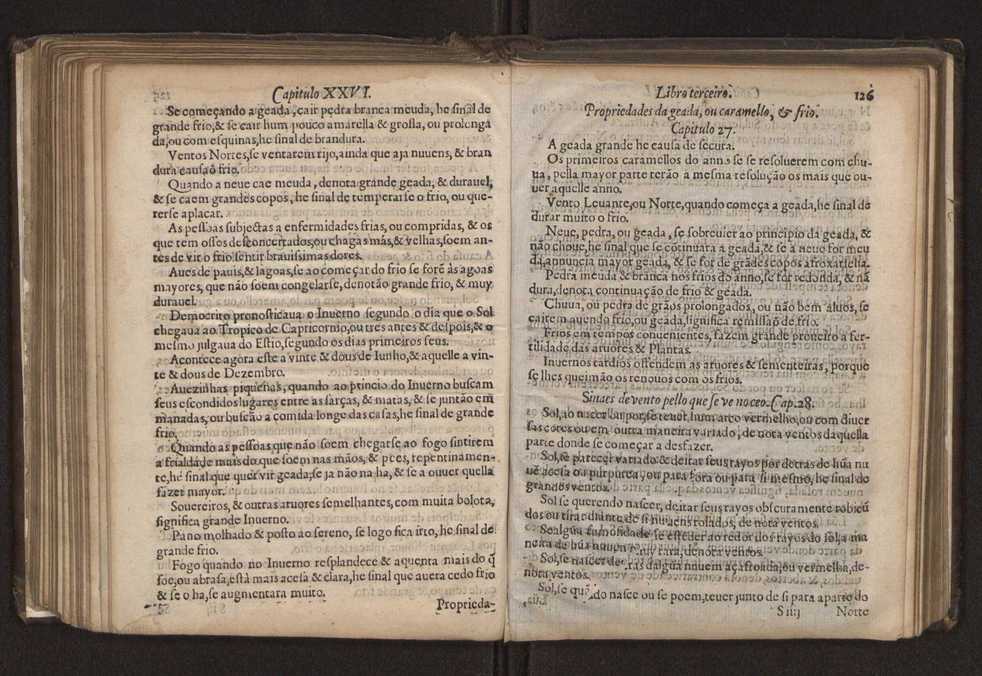 Capitulo XXVI.
Se começando a geada, cair pedra branca meuda, he sinal de
grande frio, & se cair hum pouco amarella & grossa, ou prolonga
da, ou com esquinas, he sinal de brandura.
Ventos Nortes, se ventarem rijo, ainda que aja nuuens, & bran
dura causaõ frio.
Quando a neue cae meuda, denota grande geada, & durauel,
& se caem grandes copos, he sinal de temperarse o frio, ou que-
rerse aplacar.
As pessoas subjectas a enfermidades frias, ou compridas, & os
que tem ossos desconcertados, ou chagas màs, & velhas, soem an-
tes de vir o frio sentir brauissimas dores.
Aues de pauis, & lagoas, se ao começar do frio se forẽ às agoas
mayores, que não soem congelarse, denotão grande frio, & muy
durauel.
Democrito pronosticaua o Inuerno segundo o dia que o Sol
chegaua ao Tropico de Capricornio, ou tres antes & despois, & o
mesmo julgaua do Estio, segundo os dias primeiros seus.
Acontece agora este a vinte & dous de Iunho, & aquelle a vin-
te & dous de Dezembro.
Auezinhas piquenas, quando ao princio do Inuerno buscam
seus escondidos lugares entre as sarças, & matas, & se juntão em
manadas, ou buscão a comida longe das casas, he sinal de grande
frio.
Quando as pessoas que não soem chegarse ao fogo sintirem
a frialdade mais do que soem nas mãos, & pees, repentinamen-
te, he sinal que quer vir geada, se ja não na ha, & se a ouuer quella
fazer mayor.
Souereiros, & outras aruores semelhantes, com muita bolota,
significa grande Inuerno.
Pano molhado & posto ao sereno, se logo fica irto, he sinal de
grande frio.
Fogo quando no Inuerno resplandece & aquenta mais do q̃
soe, ou abrasa, està mais acesa & clara, he sinal que auera cedo frio
& se o ha, se augmentara muito.
Proprieda-
Libro terceiro. 126
Propriedades da geada, ou caramello, & frio.
Capitulo 27.
A geada grande he causa de secura.
Os primeiros caramellos do anno se se resoluerem com chu-
ua, pella mayor parte terão a mesma resolução os mais que ou-
uer aquelle anno.
Vento Leuante, ou Norte, quando começa a geada, he sinal de
durar muito o frio.
Neue, pedra, ou geada, se sobreuier ao principio da geada, &
não choue, he sinal que se cõtinuarà a geada, & se a neue for meu
da, annuncia mayor geada, & se for de grãdes copos afroxar selha.
Pedra meuda & branca nos frios do anno, se for redonda, & nã
dura, denota continuação de frio & geada.
Chuua, ou pedra de grãos prolongados, ou não bem aluos, se
caitem auendo frio, ou geada, significa remissaõ de frio.
Frios em tempos conuenientes, fazem grande proueiro a fer-
tilidade das aruores & Plantas.
Inuernos tardios offendem as aruores & sementeiras, porque
se lhes queimão os renouos com os frios.
Sinaes de vento pello que se ve no ceo. Cap. 28.
Sol, ao nacer ou por, se teuer hum arco vermelho, ou com diuer
sas cores ou em outra maneira variado, denota ventos daquella
parte donde se começar a desfazer.
Sol, se parecer variado & deitar seus rayos por detras de hũa nu
uẽ acesa ou purpurea, ou para fora ou para si mesmo, he sinal de
grandes ventos.
Sol se querendo nascer, deitar seus rayos obscuramente robicũ
dos ou tirar diante de si nuuens roladas, denota ventos.
Se algũa fumosidade se estẽder ao redor dos rayos do sol, a ma
neira de hũa nuuem muy rara, denota ventos.
Sol, se nascer detras dalgũa nnuem açafroada, ou vermelha, de-
nota ventos.
Sol, se quãdo nasce ou se poem, teuer junto de si para aparte do
S iiij Norte